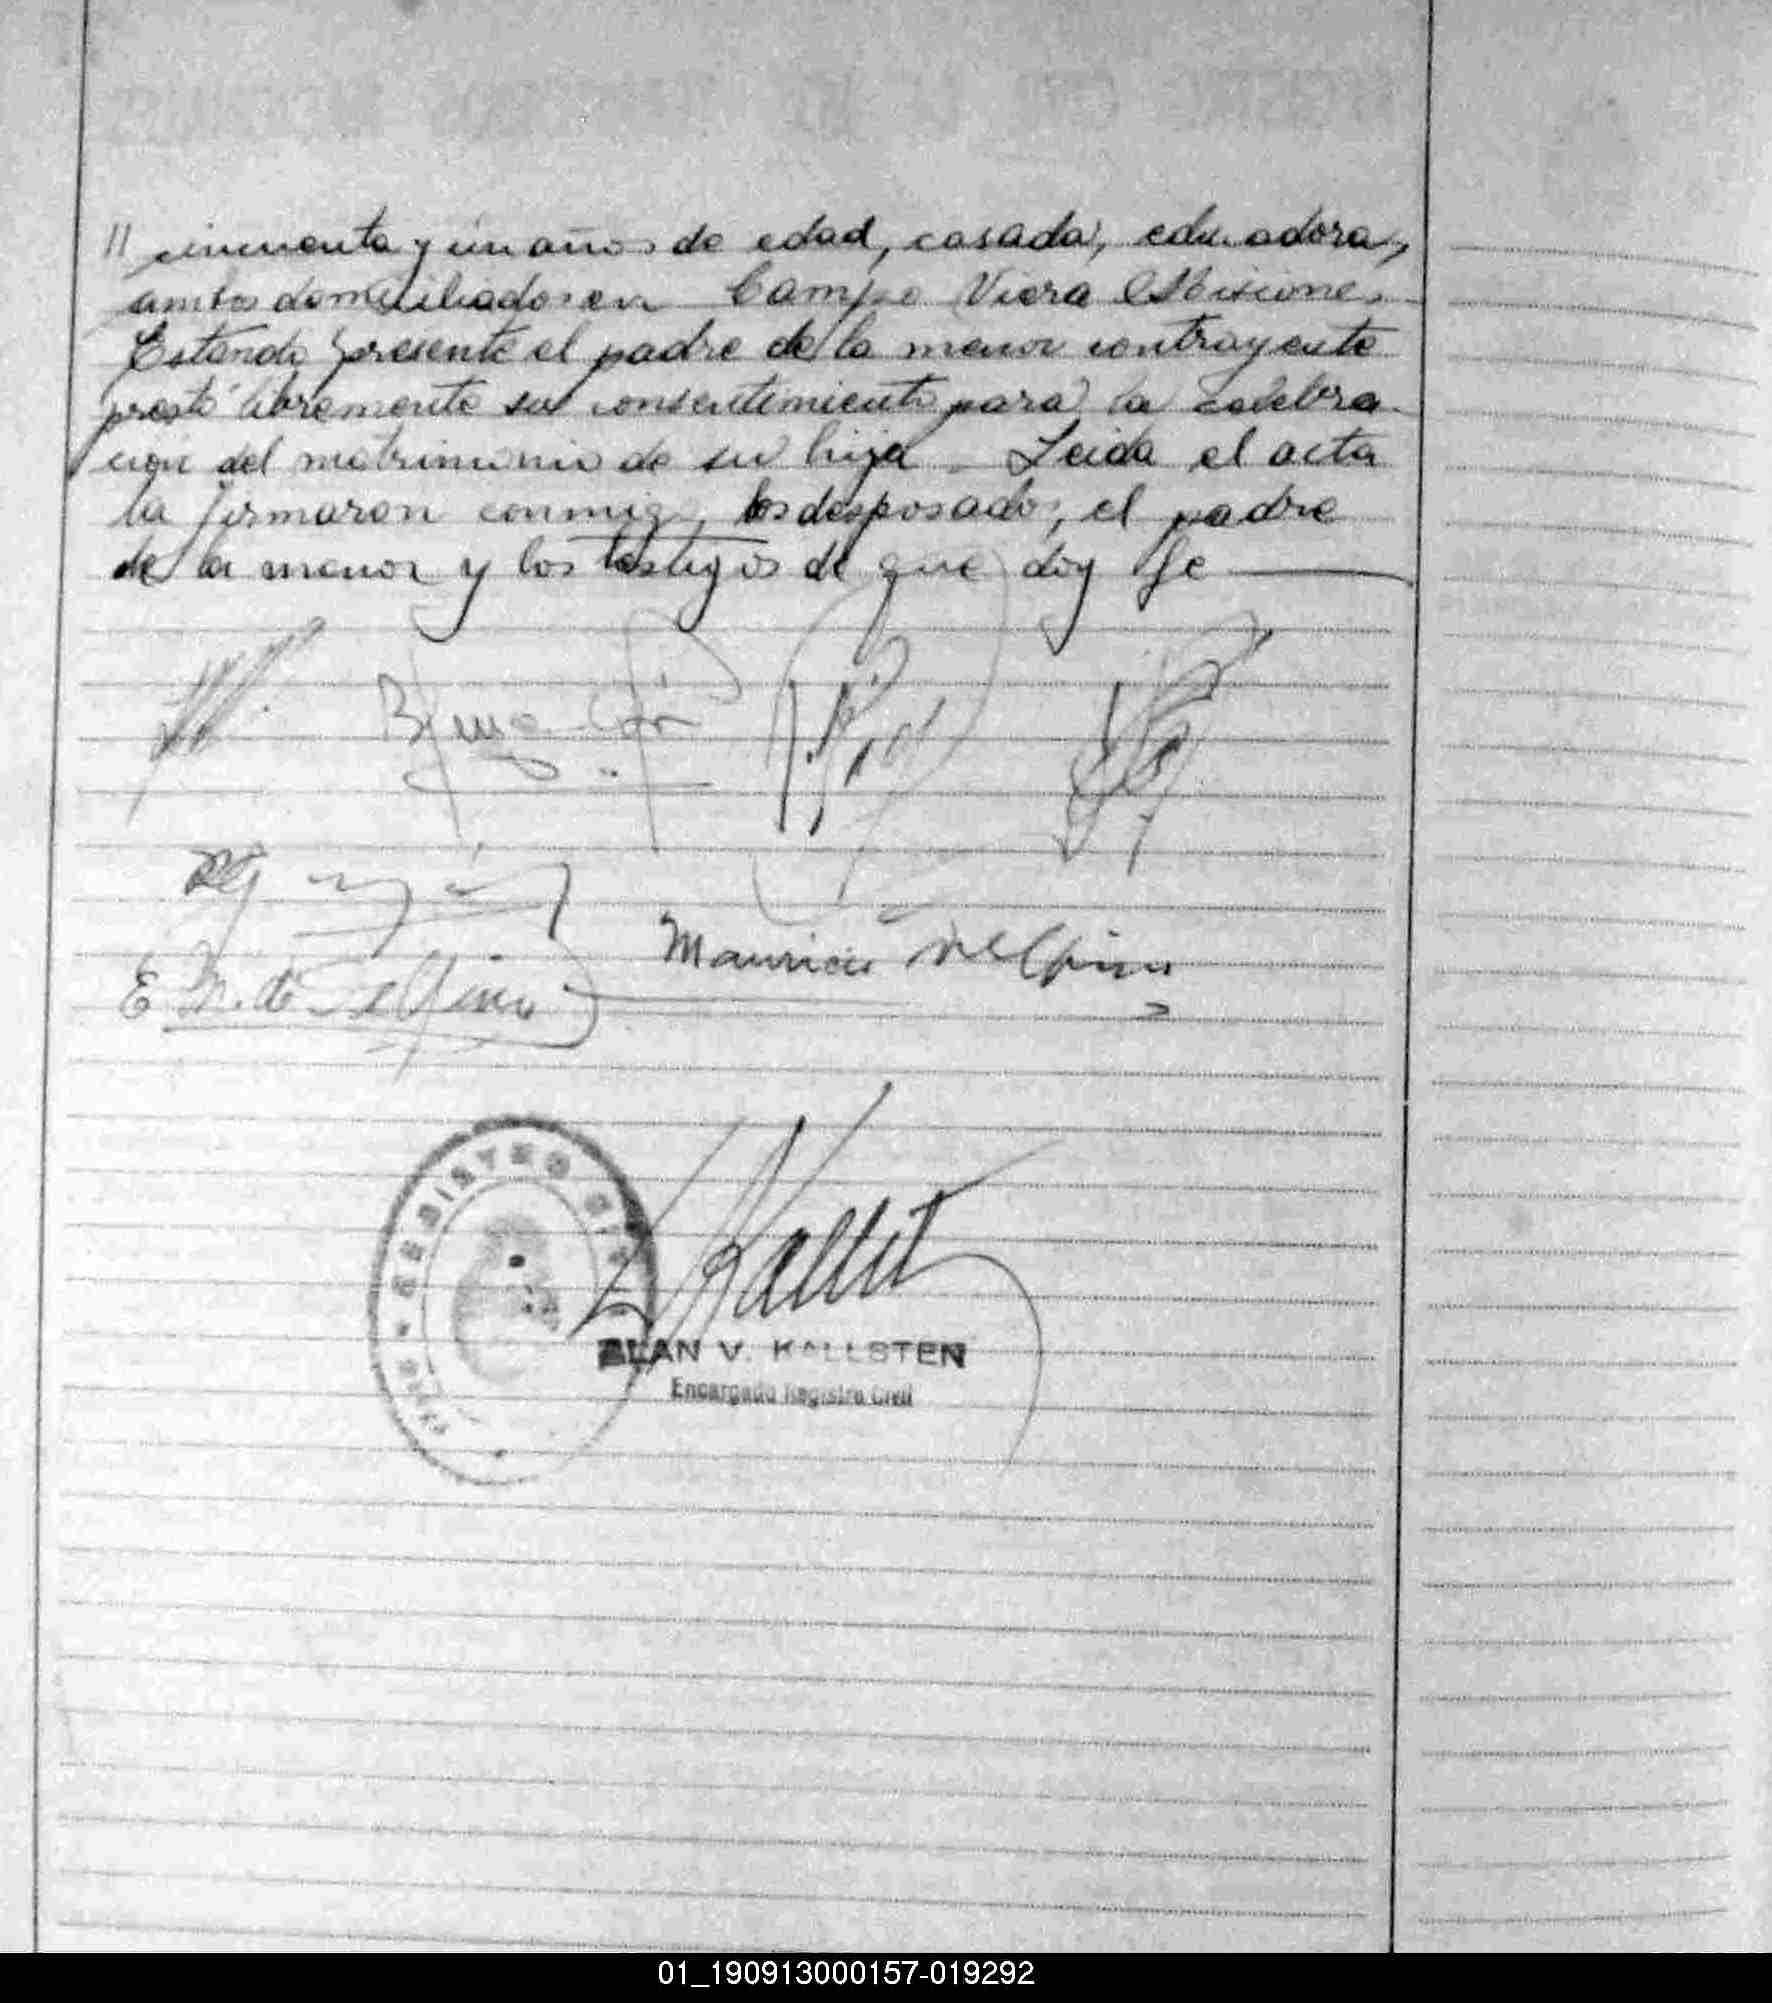 // cincuenta y un años de edad, casada, educadora,
ambos domiciliados en Campo Viera Misiones.
Estando presente el padre de la menor contrayente
prestó libremente su consentimiento para la celebra-
ción del matrimonio de su hija. Leida el acta
la firmaron conmigo, los desposados, el padre
de la menor y los testigos de que doy fe
Mauricio Delpino
E M. de Delpino
REGISTRO
Kallst
ALAN V. KALLSTEN
Encargado Registro Civil
01_190913000157-019292